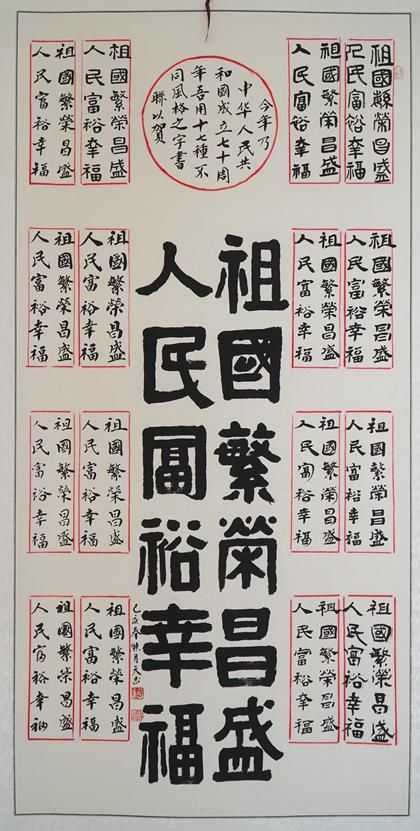 祖國繁榮昌盛
人民富裕幸福
祖國繁榮昌盛
人民富裕幸福
今年乃
中华人民共
和國成立七十周
年吾用十七種不
同風格之字書
聯以贺
祖國繁榮昌盛
人民富裕幸福
祖國繁榮昌盛
人民富裕幸福
祖國繁榮昌盛
人民富裕幸福
祖國繁榮昌盛
人民富裕幸福
祖國繁榮昌盛
人民富裕幸福
祖國繁榮昌盛
人民富裕幸福
祖國繁榮昌盛
人民富裕幸福
祖國繁榮昌盛
人民富裕幸福
祖國繁榮昌盛
人民富裕幸福
祖國繁榮昌盛
人民富裕幸福
祖國繁榮昌盛
人民富裕幸福
祖國繁榮昌盛
人民富裕幸福
祖國繁榮昌盛
人民富裕幸福
祖國繁榮昌盛
人民富裕幸福
祖國繁榮昌盛
人民富裕幸福
己亥春